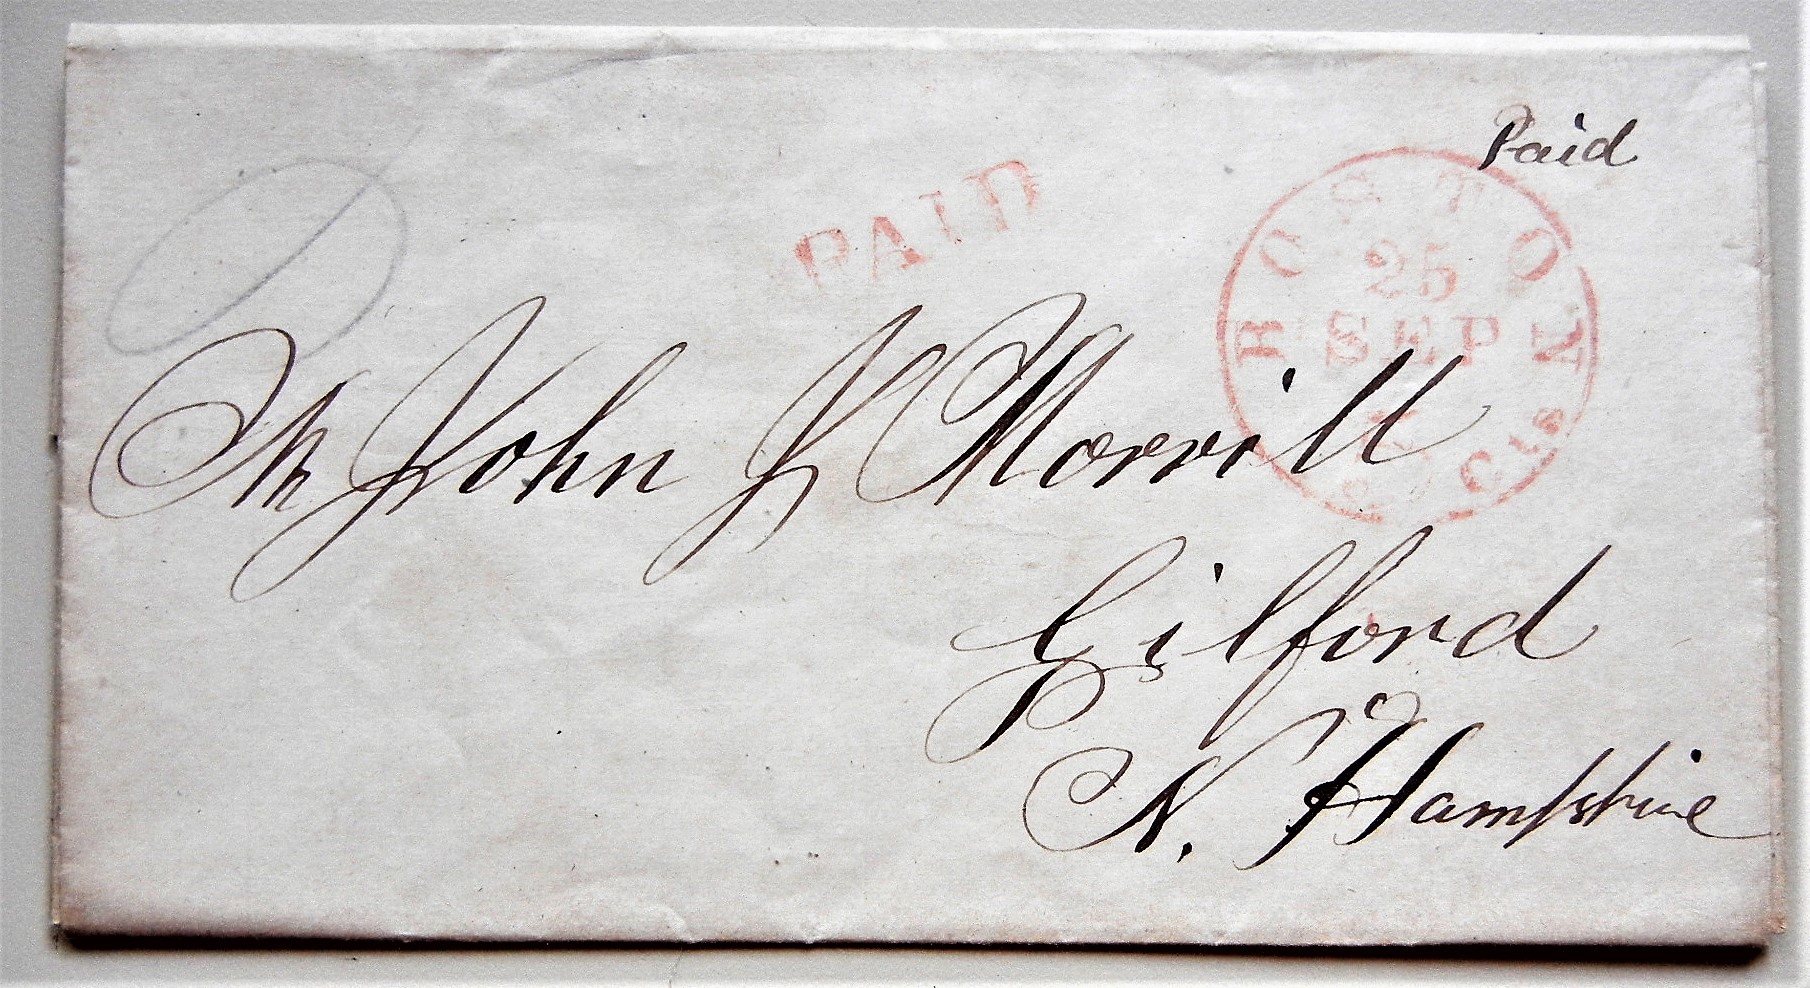 Paid
PAID
BOSTON
25
SEP
5 Cts
Mr John J Morrill
Gilford
N. Hampshire